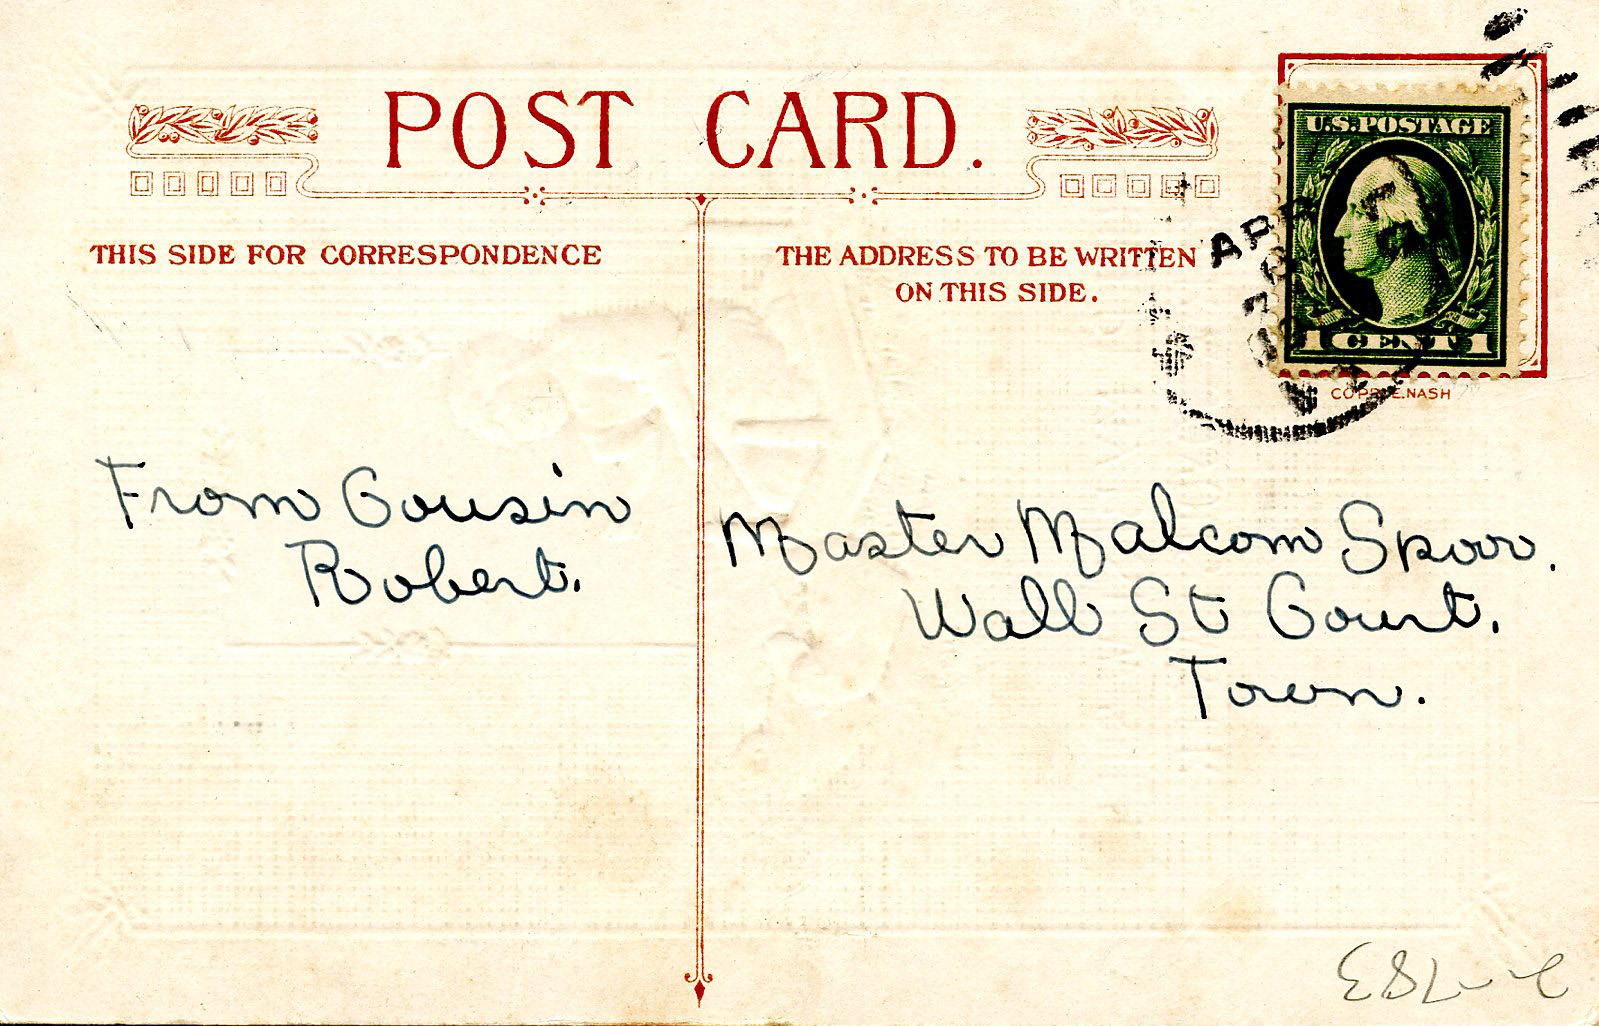 POST CARD.
THIS SIDE FOR CORRESPONDENCE
THE ADDRESS TO BE WRITTEN
ON THIS SIDE.
U.S. POSTAGE
1 CENT 1
APR
COPR. E. NASH
From Cousin
Robert.
Master Malcom Spoor.
Wall St Court.
Town.